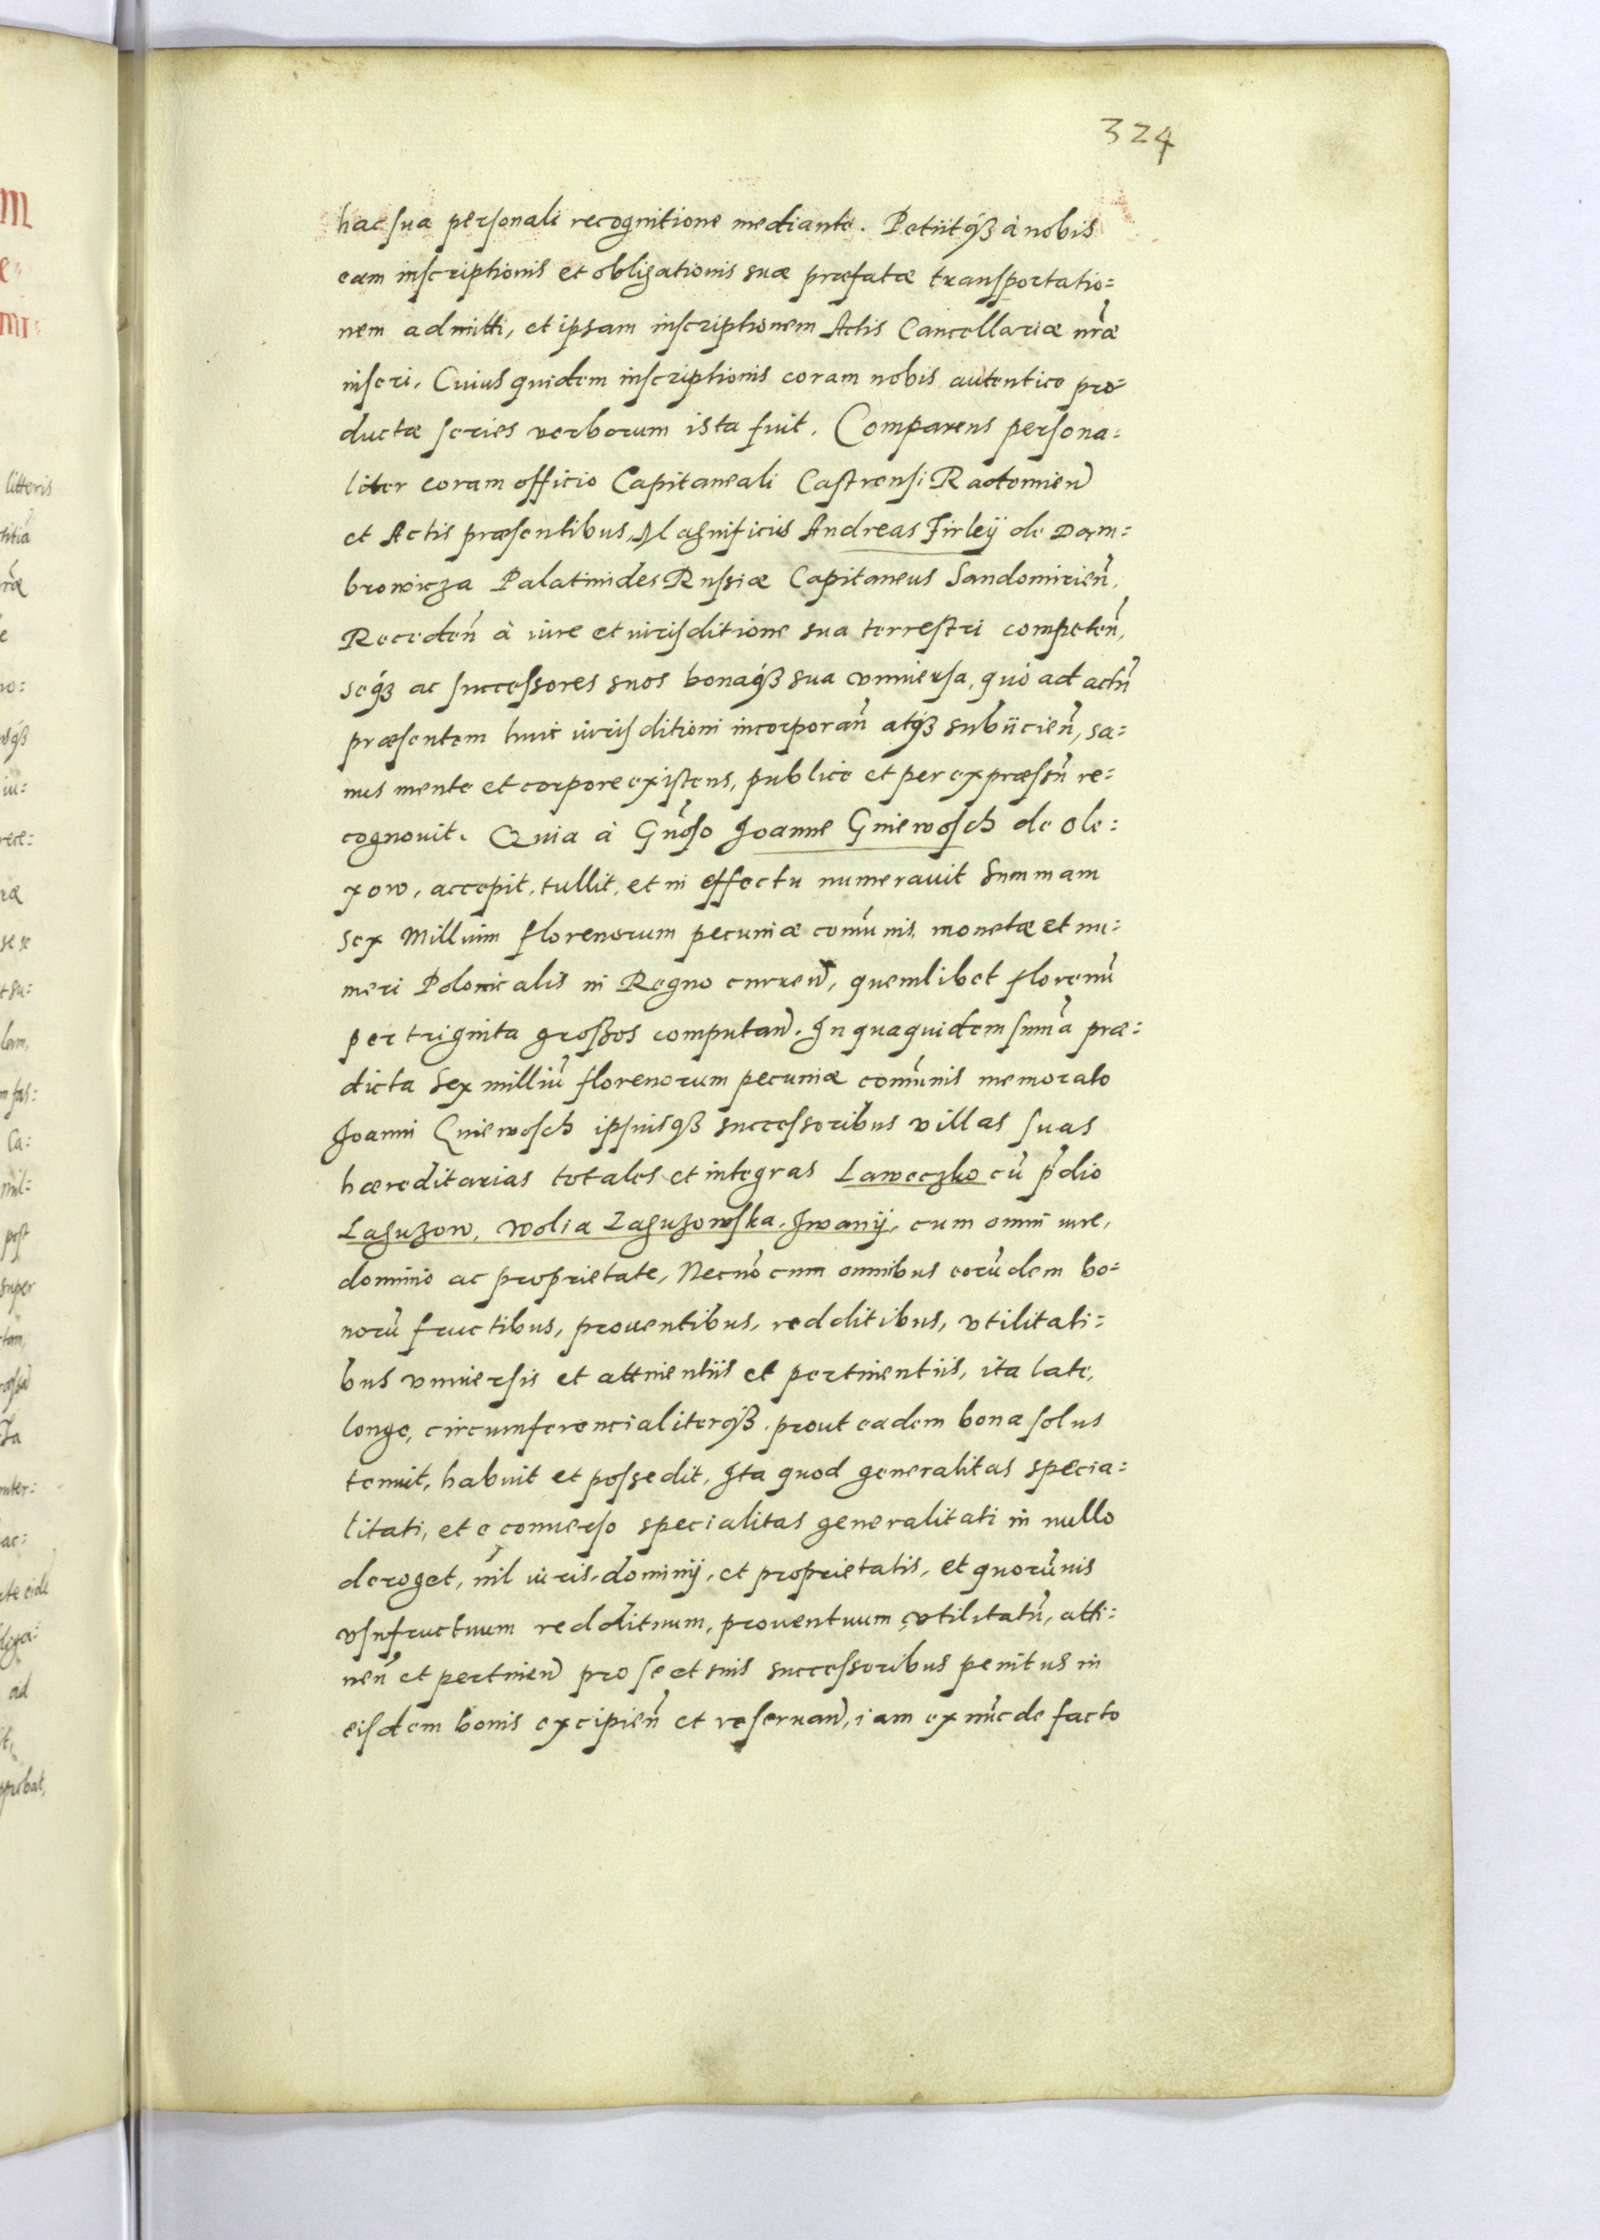 324
hac sua personali recognitione mediante. Petiitq3 à nobis
eam inscriptionis et obligationis suæ præfatæ transportatio=
nem admitti, et ipsam inscriptionem Actis Cancellariæ nr̃æ
inseri. Cuius quidem inscriptionis coram nobis autentice pro=
ductæ series verborum ista fuit. Comparens persona=
liter coram officio Capitaneali Castrensi Radomien̄
et Actis præsentibus, Magnificus Andreas Firleÿ de Dąm=
browicza Palatinides Russiæ Capitaneus Sandomirien̄,
Receden̄ à iure et iurisditione sua terrestri competen̄,
seq́3 ac successores suos bonaq́3 sua vniuersa, quò ad actū
præsentem huic iurisditioni incorporan̄ atq́3 subiicien̄, sa=
nus mente et corpore existens, publice et per expræssū re=
cognouit. Quia à Gn̄oso Joanne Gniewosch de Ole=
xow, accepit, tullit, et in effectu numerauit Summam
Sex Millium florenorum pecuniæ com̄unis, monetæ et nu=
meri Polonicalis in Regno curren̄, quemlibet florenū
per triginta grossos computan̄. In qua quidem sum̄a præ=
dicta Sex milliū florenorum pecuniæ com̄unis memorato
Joanni Gniewosch ipsiusq3 successoribus villas suas
hæreditarias totales et integras Laweczko cū p̄dio
Laguzow, Wolia Laguzowska, Jwanij, cum omni iure,
dominio ac proprietate, Necnō cum omnibus eorūdem bo=
norū fructibus, prouentibus, redditibus, vtilitati=
bus vniuersis et attinentiis et pertinentiis, ita late,
longe, circumferencialiterq́3, prout eadem bona solus
tenuit, habuit et possedit, Ita quod generalitas specia=
litati, et e conuerso specialitas generalitati in nullo
deroget, nil iuris, dominij, et proprietatis, et quorūuis
vsufructuum reddituum, prouentuum, vtilitatū, atti=
nen̄ et pertinen̄ pro se et suis successoribus penitus in
eisdem bonis excipien̄ et reseruan̄, iam ex nūc de facto